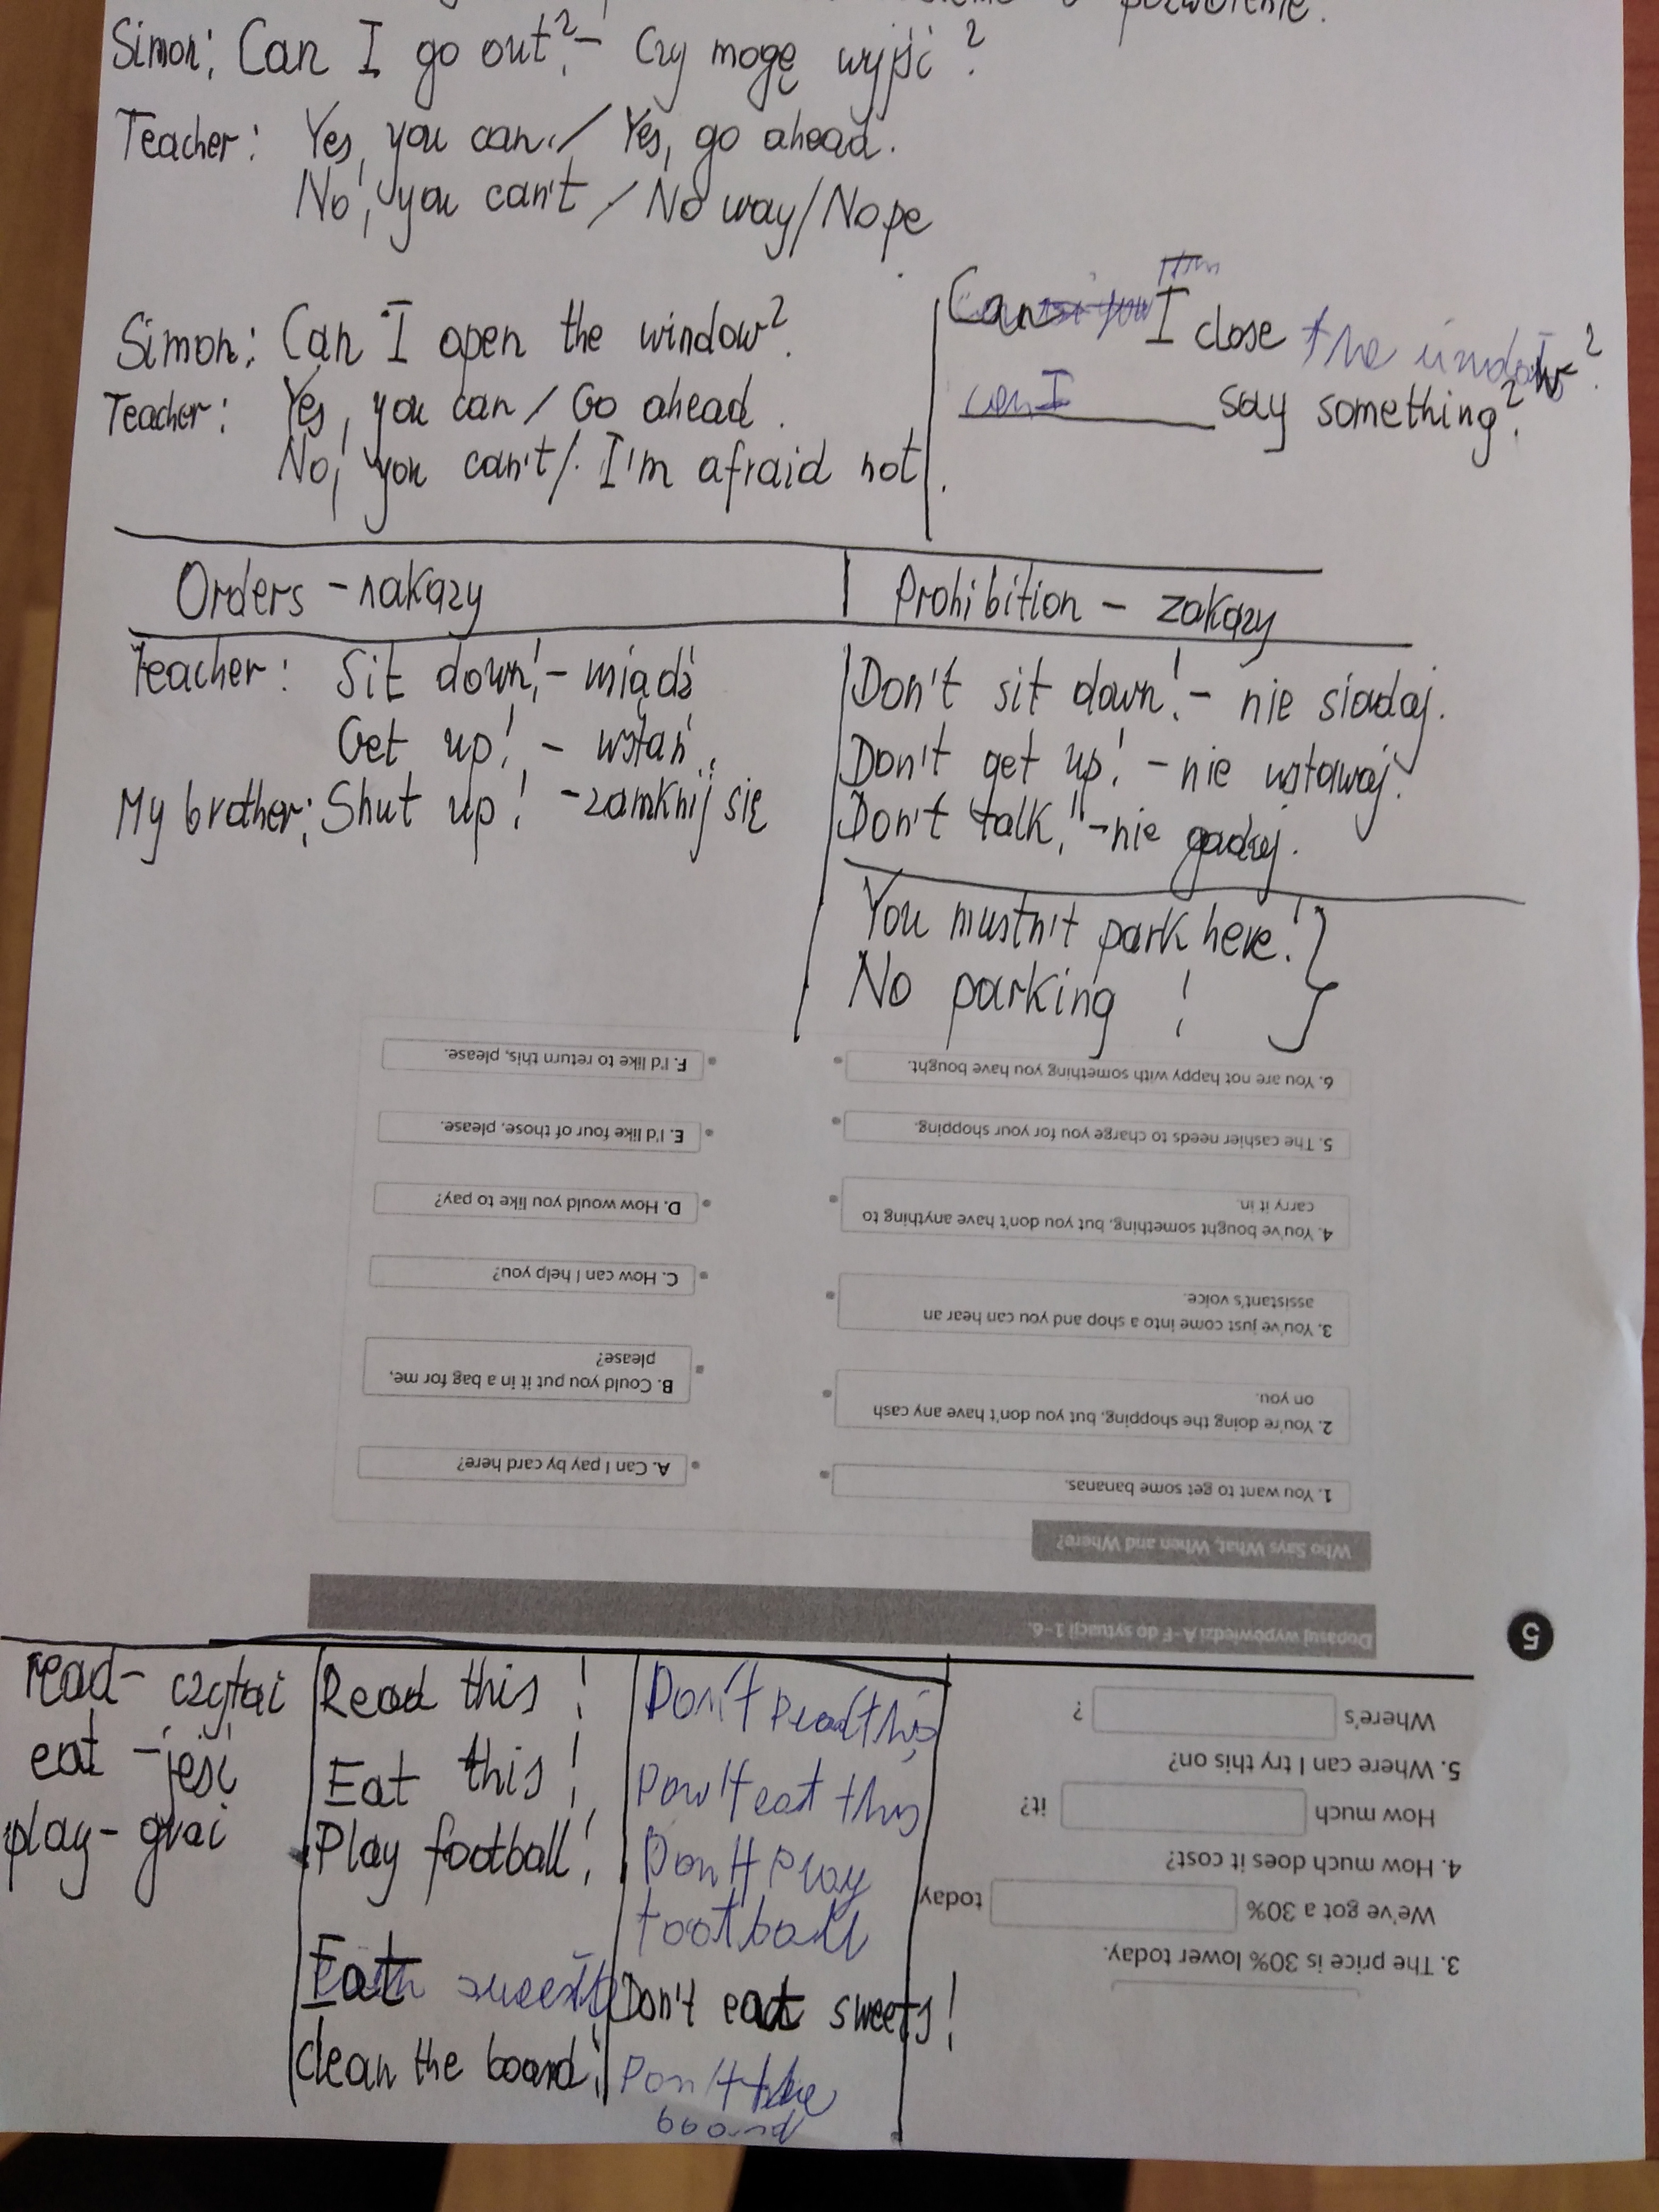 pozwolenie.
Simon: Can I go out? - Czy mogę wyjść?
Teacher: Yes, you can./ Yes, go ahead.
No, you can't / No way/Nope
Simon: Can I open the window?
Teacher: Yes, you can / Go ahead.
No, you can't/. I'm afraid not.
Can I close the window?
can I say something?
Orders - nakazy
Prohibition - zakazy
Teacher: Sit down! - siądź
Get up! - wstań.
My brother: Shut up! - zamknij się
Don't sit down! - nie siadaj.
Don't get up! - nie wstawaj.
Don't talk! - nie gadaj.
You mustn't park here!
No parking !
read - czytai
eat - jeść
play - grai
Read this !
Eat this !
Play football!
Eat sweets
clean the board!
Don't read this
Don't eat this
Don't play
football
Don't eat sweets!
Don't the
board
3. The price is 30% lower today.
We've got a 30% today
4. How much does it cost?
How much it?
5. Where can I try this on?
Where's ?
5
Dopasuj wypowiedzi A-F do sytuacji 1-6.
Who Says What, When and Where?
1. You want to get some bananas.
2. You're doing the shopping, but you don't have any cash
on you.
3. You've just come into a shop and you can hear an
assistant's voice.
4. You've bought something, but you don't have anything to
carry it in.
5. The cashier needs to charge you for your shopping.
6. You are not happy with something you have bought.
A. Can I pay by card here?
B. Could you put it in a bag for me,
please?
C. How can I help you?
D. How would you like to pay?
E. I'd like four of those, please.
F. I'd like to return this, please.